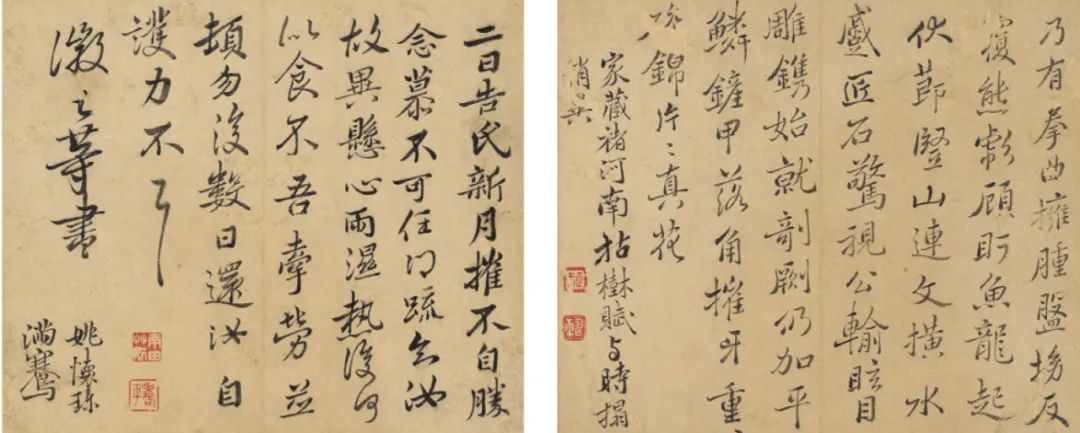 乃有拳曲擁腫盤拗反
覆熊彪顧盼魚龍起
伏節豎山連文橫水
蹙匠石驚視公輸眩目
雕鐫始就剞劂仍加平
鱗鏟甲落角摧牙重
〻碎錦片〻真花
家藏褚河南枯樹賦与時搨
稍異
二日告氏新月摧不自勝
念慕不可任得疏知汝
故異懸心雨濕熱復何
似食不吾牽勞並
頓勿復數日還汝自
護力不一一
徽之等書
姚懷珍
滿騫